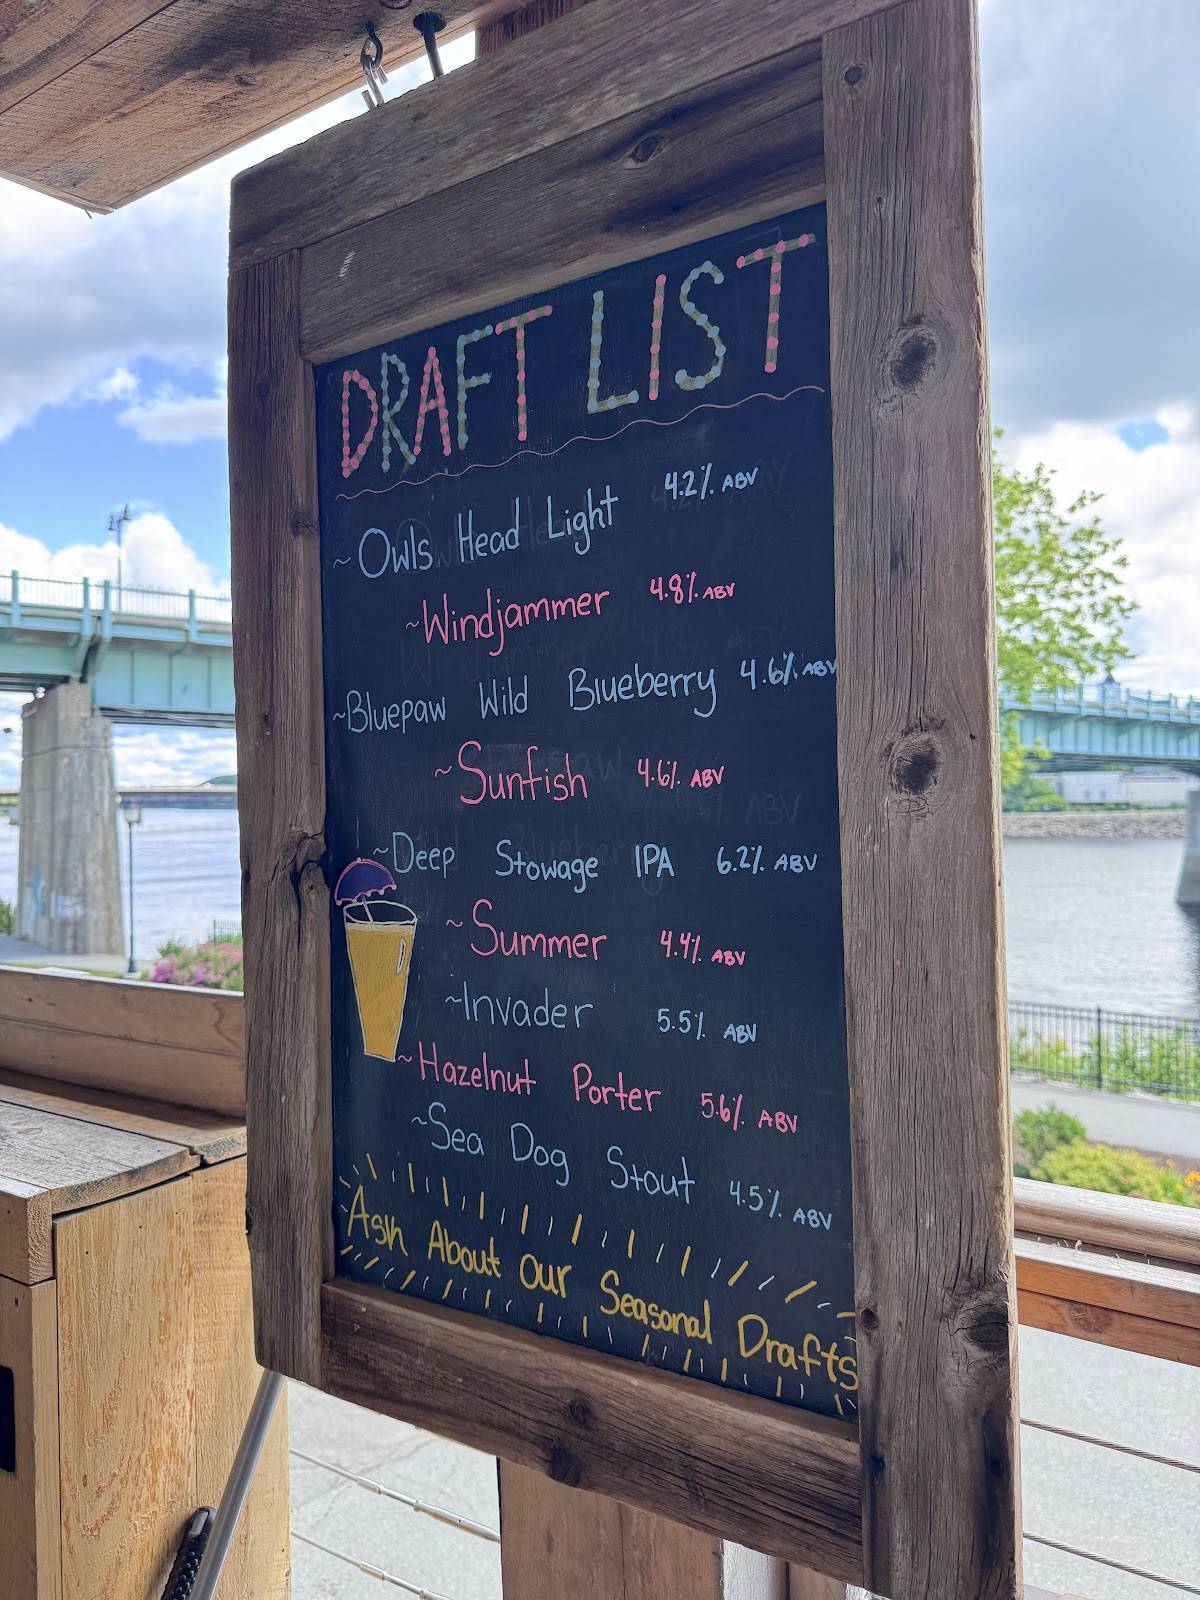 DRAFT LIST
~ Owls Head Light 4.2% ABV
~Windjammer 4.8% ABV
~Bluepaw Wild Blueberry 4.6% ABV
~Sunfish 4.6% ABV
~Deep Stowage IPA 6.2% ABV
~Summer 4.4% ABV
~Invader 5.5% ABV
~Hazelnut Porter 5.6% ABV
~Sea Dog Stout 4.5% ABV
Ask About Our Seasonal Drafts